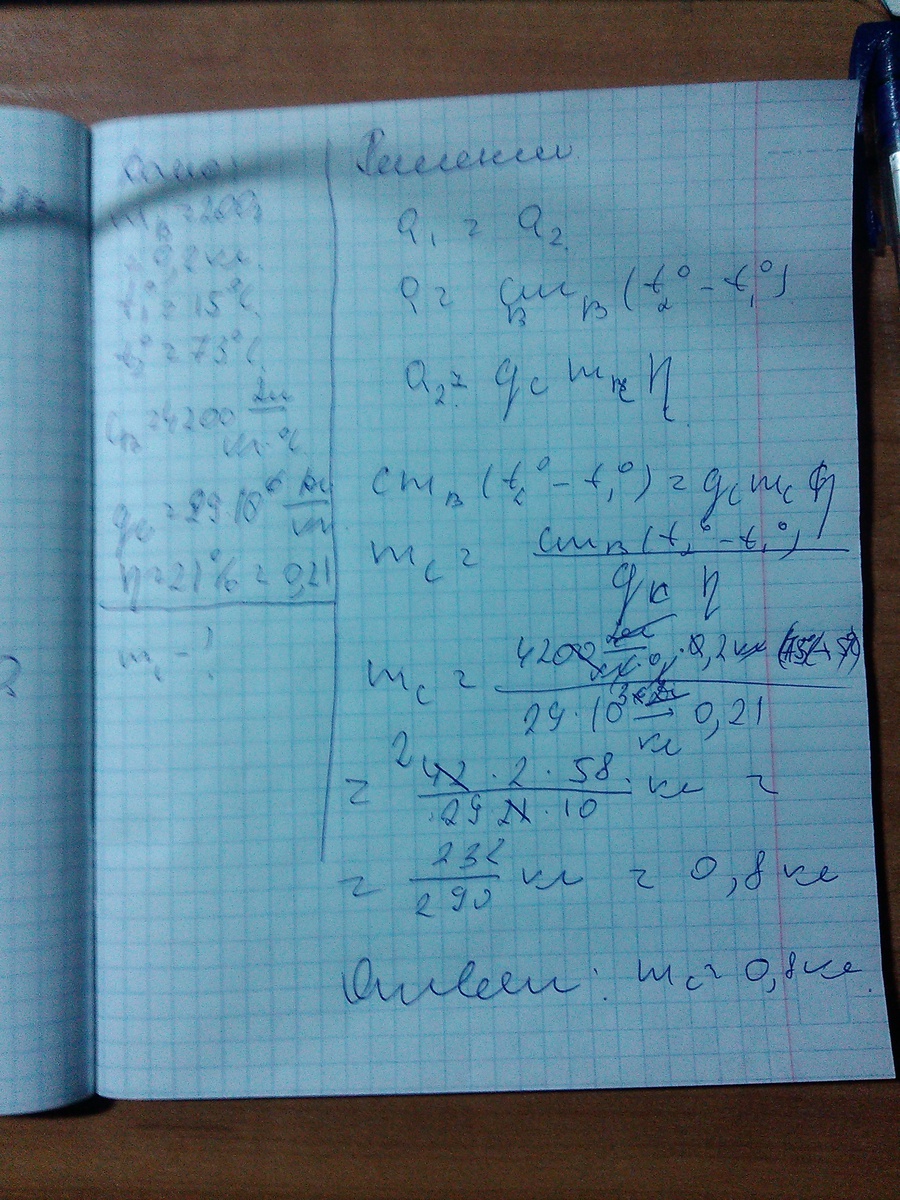 Дано:
m_в = 200г
= 0,2 кг.
t₁° = 15°C.
t₂° = 73°C.
C_в = 4200 Дж/кг·°C
q_c = 29·10⁶ Дж/кг
η = 21% = 0,21
m_c - ?
Решение
Q₁ = Q₂.
Q = c_в m_в (t₂° - t₁°)
Q₂ = q_c m_c η
c m_в (t₂° - t₁°) = q_c m_c η
m_c = c m_в (t₂° - t₁°) / q_к η
m_c = 4200 Дж/кг·°C · 0,2 кг / 29·10³ 0,21
= 42 · 2 · 58 / 29 21 · 10 кг =
= 232 / 290 кг = 0,8 кг
Ответ: m_c = 0,8 кг.